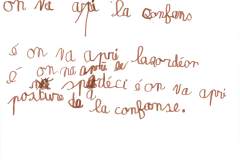 on va apri la confans
é on va apri lacordéon
é on va apri
spédéci é on va apri
posture de la confanse.